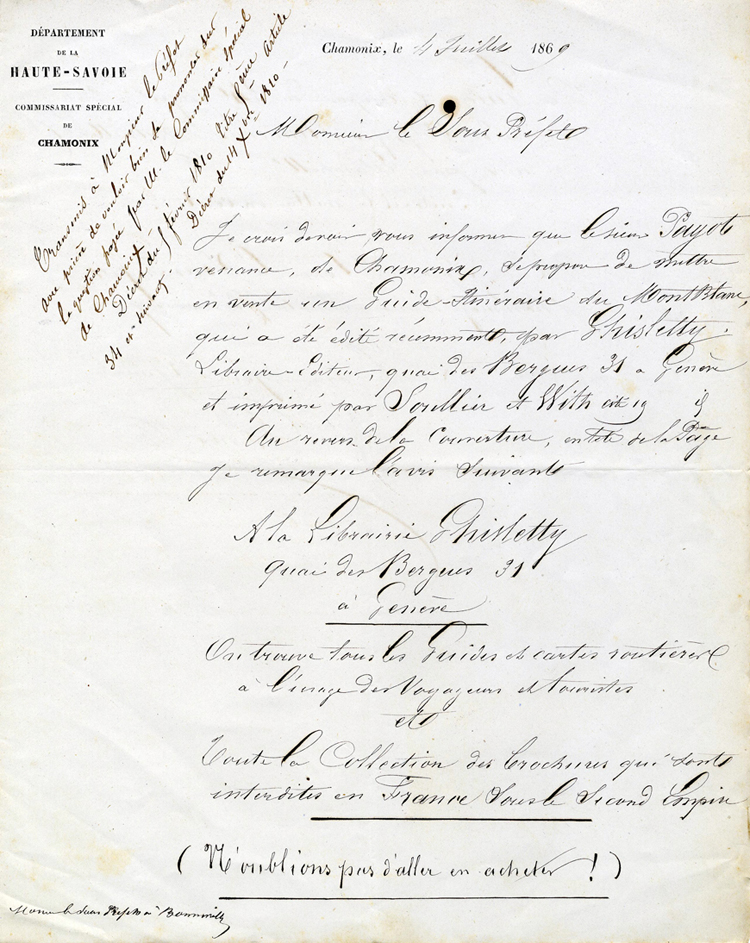 DÉPARTEMENT
DE LA
HAUTE-SAVOIE
COMMISSARIAT SPÉCIAL
DE
CHAMONIX
Chamonix, le 4 Juillet 1869
Transmis à Monsieur le Préfet
avec prière de vouloir bien se prononcer sur
la question posée par M. le Commissaire spécial
de Chamonix.
Décret du 5 février 1810 titre 5ème article
34 et suivants. Décret du 14 Xbre 1810.
Monsieur le Sous Préfet
Je crois devoir vous informer que le sieur Payot
venance, de Chamonix, se propose de mettre
en vente un Guide-Itineraire du Mont Blanc,
qui a été édité récemment, par Ghisletty
Libraire-Editeur, quai des Bergues 31 a Genève
et imprimé par Soullier et With cité 19
Au revers de la Couverture, en tête de la Page
je remarque l'avis suivant
A la Librairie Ghisletty
quai des Bergues 31
à Genève
On trouve tous les Guides et cartes routières
à l'usage des Voyageurs et touristes
et
Toute la Collection des brochures qui sont
interdites en France sous le Second Empire
(N'oublions pas d'aller en acheter !)
Monsieur le Sous Préfet à Bonneville